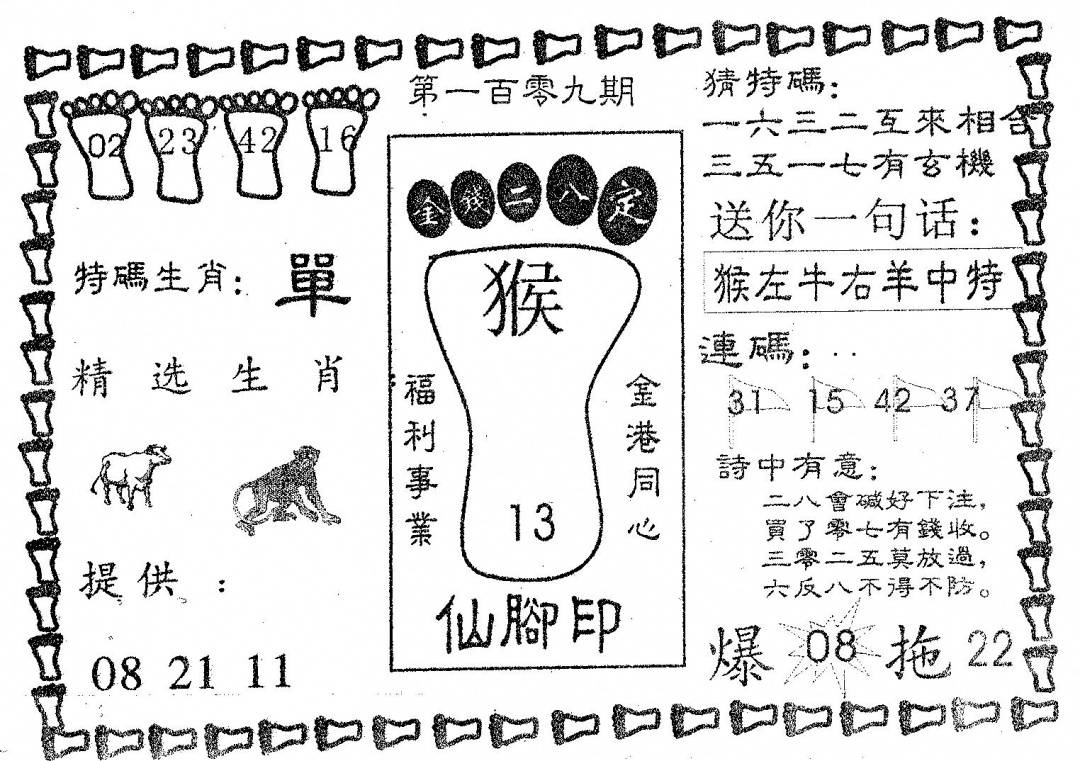 第一百零九期
02 23 42 16
特碼生肖： 單
精 选 生 肖
提供 ：
08 21 11
金錢二八定
猴
福利事業
金港同心
13
仙腳印
猜特碼：
一六三二互來相合
三五一七有玄機
送你一句话：
猴左牛右羊中特
連碼：..
31 15 42 37
詩中有意：
二八會碱好下注，
買了零七有錢收。
三零二五莫放過，
六反八不得不防。
爆 08 拖 22